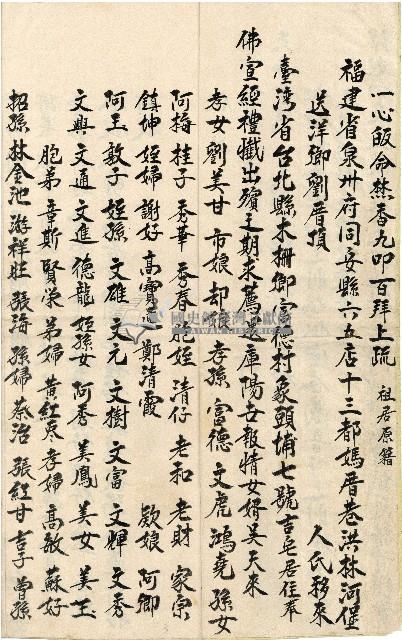 一心皈命焚香九叩百拜上疏 祖居原籍
福建省泉州府同安縣六五店十三都媽厝巷洪林河堡
送洋鄉劉厝頂 人氏移來
臺湾省台北縣木柵鄉富德村象頭埔七號吉宅居住奉
佛宣經禮懺出殯之期求薦 庫陽世報情女婿吴天來
孝女劉美甘 市娘 却娘 孝孫 富德 文虎 鴻堯 孫女
阿梅 桂子 秀華 秀春 胞姪 清仔 老和 老財 家宗
鎮坤 姪婦 謝好 高寶蓮 鄭清霞 欵娘 阿卿
阿玉 敏子 姪孫 文雄 文元 文樹 文富 文輝 文秀
文興 文通 文進 德龍 姪孫女 阿秀 美鳳 美女 美玉
胞弟 章斯 賢荣 弟婦 黄紅枣 孝婦 高敏 蘇好
招孫 林金池 游祥旺 張海 孫婦 蔡治 張紅甘 吉子 曾孫
國史館臺灣文獻館
TAIWAN HISTORICA